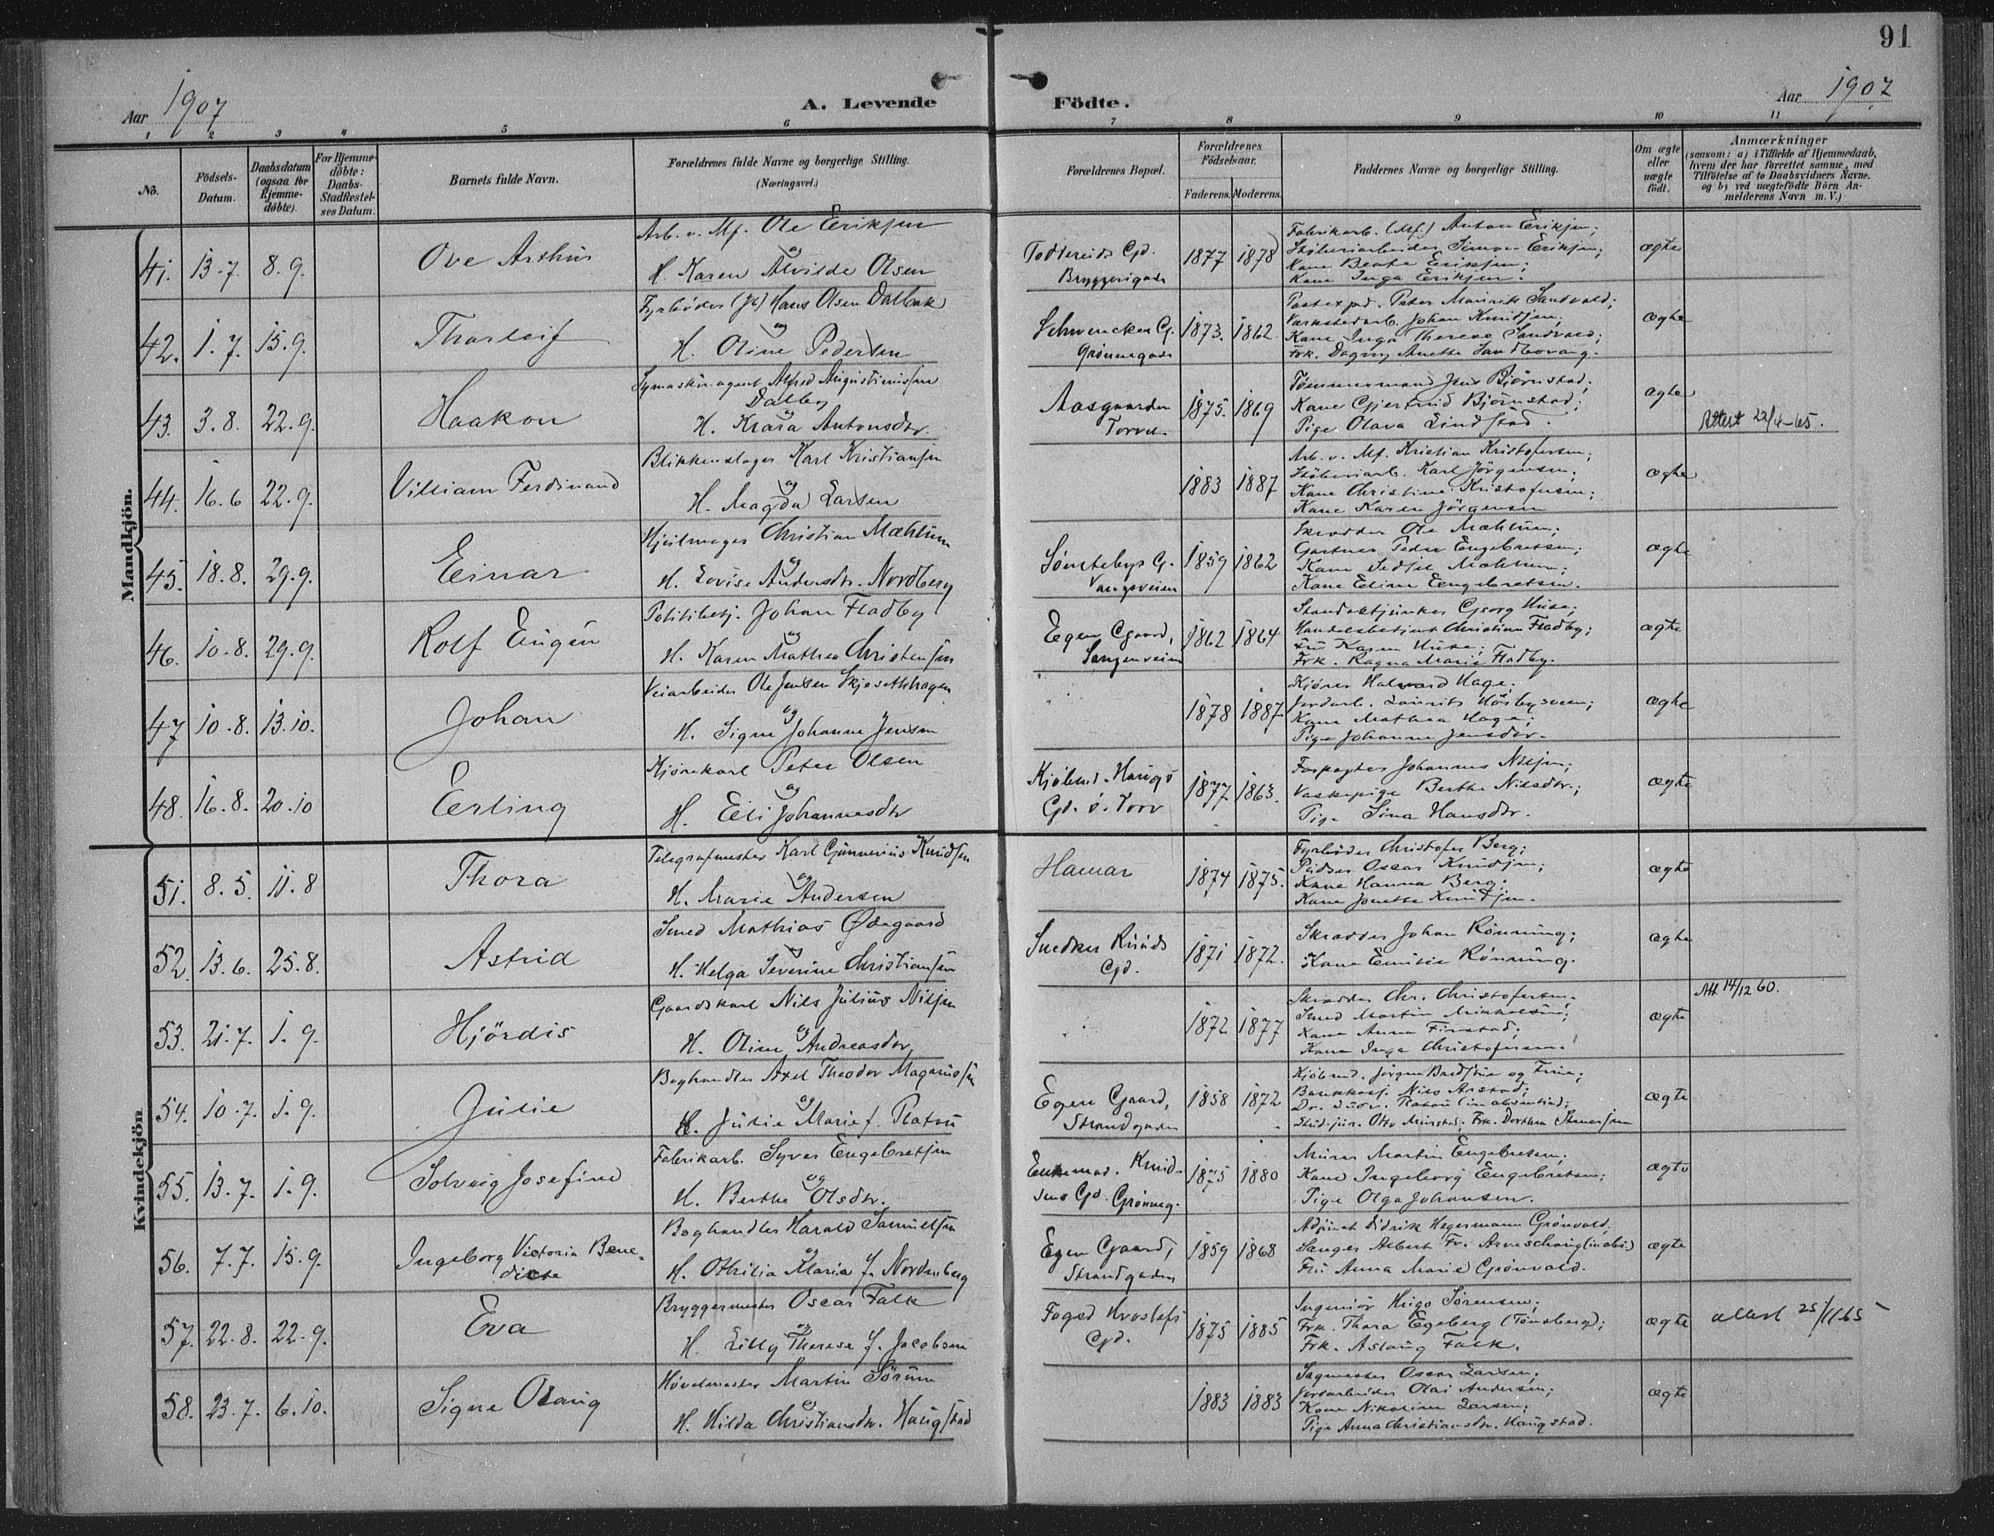 91
Aar 1907
A. Levende Födte.
Aar 1907
1 2 3 4 5 6 7 8 9 10 11
No.
Födsels-
Datum.
Daabsdatum
(ogsaa for
Hjemme-
döbte).
For Hjemme-
döbte:
Daabs-
Stadfæstel-
ses Datum.
Barnets fulde Navn.
Forældrenes fulde Navne og borgerlige Stilling.
(Næringsvei.)
Forældrenes Bopæl.
Forældrenes
Födselsaar.
Faderens. Moderens.
Faddernes Navne og borgerlige Stilling.
Om ægte
eller
uægte
födt.
Anmærkninger
(saasom: a) i Tilfælde af Hjemmedaab,
hvem der har forrettet samme, med
Tilföielse af to Daabsvidners Navne,
og b) ved uægtefödte Börn An-
melderens Navn m. V.)
Mandkjön.
41. 13.7. 8.9.
Ove Arthur
Arb. v. Mf. Ole Eriksen
og
H. Karen Alvilde Olsen
Bryggerigade
1877 1878
Fabrikarb. (Mf.) Anton Eriksen;
Skiberiarbeider Simon Eriksen;
Kone Berte Eriksen;
Kone Inga Eriksen.
ægte
42. 1.7. 15.9.
Thorleif
Fyrbøder (Jb) Hans Olsen Dalbak
og
H. Oline Pedersen
Schwencken G.
Grønnegade
1873. 1862.
Postexped. Peter Maurits Sandvold;
Værkstedarb. Johan Knudsen;
Kone Inga Therese Sandvold;
Frk. Dagny Anette
ægte
43. 3.8. 22.9.
Haakon
Symaskinagent Alfred Augustinussen
Dalby
og
H. Klara Antonsdr.
Aasgaarden
Torvet.
1875. 1869
Tømmermand Jens Bjørnstad;
Kone Gjertrud Bjørnstad;
Pige Olava Lindstad.
ægte
Attest 22/4-65.
44. 16.6 22.9.
William Ferdinand
Blikkenslager Karl Kristiansen
og
H. Magda Larsen
1883 1887
Arb. v. Mf. Kristian Kristofersen;
Karl Jørgensen;
Kone Christine Kristofersen;
Kone Karen Jörgensen
ægte
45. 18.8. 29.9.
Einar
Hjulmager Christian Mæhlum
og
H. Lovise Andersdr. Nordberg
Sønsteby G.
Vangsveien
1859 1862
Skrædder Ole Mæhlum;
Gartner Peder Engebretsen;
Kone Mæhlum;
Kone Eline Engebretsen.
ægte
46. 10.8. 29.9.
Rolf Eugén
Politibetj. Johan Fladby
og
H. Karen Mathea Christensen
Egen Gaard,
Sangenveien
1862 1864
Georg Huse;
Handelsbetjent Christian Fladby;
Fru Karen Huse;
Frk. Ragna Marie Fladby.
ægte
47 10.8. 13.10.
Johan
Veiarbeider Ole Jensen Skjesethhagen
og
H. Signe Johanne Jensen
1878 1887
Kjører Halvard Hage;
Jordarb. Laurits Hösbysveen;
Kone Mathea Hage;
Pige Johanne Jensdr.
ægte
48. 16.8. 20.10
Erling
Kjørekarl Peter Olsen
og
H. Eli Johannesdr
Kjøbmd. Haugs
Gd. ö. Torv
1877 1863.
Forpagter Johannes Nilsen;
Vaskepige Berthe Nilsdr.;
Pige Lina Hansdr.
ægte
Kvindekjön
51. 8.5. 11.8
Thora
Telegrafmester Karl Gunnerius Knudsen
og
H. Marie Andersen
Hamar
1874 1875.
Fyrbøder Christofer Berg;
Pudser Oscar Knudsen;
Kone Hanna Berg;
Kone Jonette Knudsen.
ægte
52. 13.6. 25.8.
Astrid
Smed Mathias Ødegaard
og
H. Helga Severine Christiansen
Snedker Ruuds
Gd.
1871 1872.
Skrædder Johan Rönning;
Kone Emilie Rönning.
ægte
53. 21.7. 1.9.
Hjördis
Gaardskarl Nils Julius Nilsen
og
H. Oline Andreasdr.
1872 1877
Skrædder Chr. Christofersen;
Smed Martin Mikkelsen;
Kone Anna Finstad;
Kone Inga Christofersen.
ægte
Att 14/12 60.
54. 10.7. 1.9.
Julie
Boghandler Axel Theodor Magnussen
og
H. Julie Marie f. Platou
Egen Gaard,
Strandgaden
1858 1872
Kjøbmd. Jørgen Bredside og Frue;
Bankkass. Nils Arstad;
Dr. Ludv. Platou (in absentia);
Stud. jur. Otto Mürstad; Frk. Dorthea
ægte
55. 13.7. 1.9.
Solveig Josefine
Fabrikarb. Syver Engebretsen
og
H. Berthe Olsdr.
Enkemad. Knud-
sens Gd. Grønneg.
1875 1880
Murer Martin Engebretsen;
Kone Ingeborg Engebretsen;
Pige Olga Johansen.
ægte
56. 7.7. 15.9.
Ingeborg Victoria Bene-
dicte
Boghandler Harald Samuelsen
og
H. Othilia Maria f. Nordenberg
Egen Gaard,
Strandgaden
1859 1868
Adjunct Didrik Hegermann Grönvold,
Sanger Albert Fr. Arveschoug (in abs.)
Fru Anna Marie Grönvold.
ægte
57. 22.8. 22.9.
Eva
Bryggermester Oscar Falk
og
H. Lilly Therese f. Jacobsen
Foged Hroslefs
Gd.
1875 1885
Ingeniör Hugo Sörensen;
Frk. Thora Egeberg (Tönsberg);
Frk. Aslaug Falk.
ægte
attest 25/11 65
58. 23.7. 6.10.
Signe Olaug
Høvelmester Martin Sörum
og
H. Hilda Christiansdr. Haugstad
1883 1883
Sagmester Oscar Larsen;
Jordarbeider Olai Andersen;
Kone Nikoline Larsen;
Pige Anna Christiansdr. Haugstad.
ægte